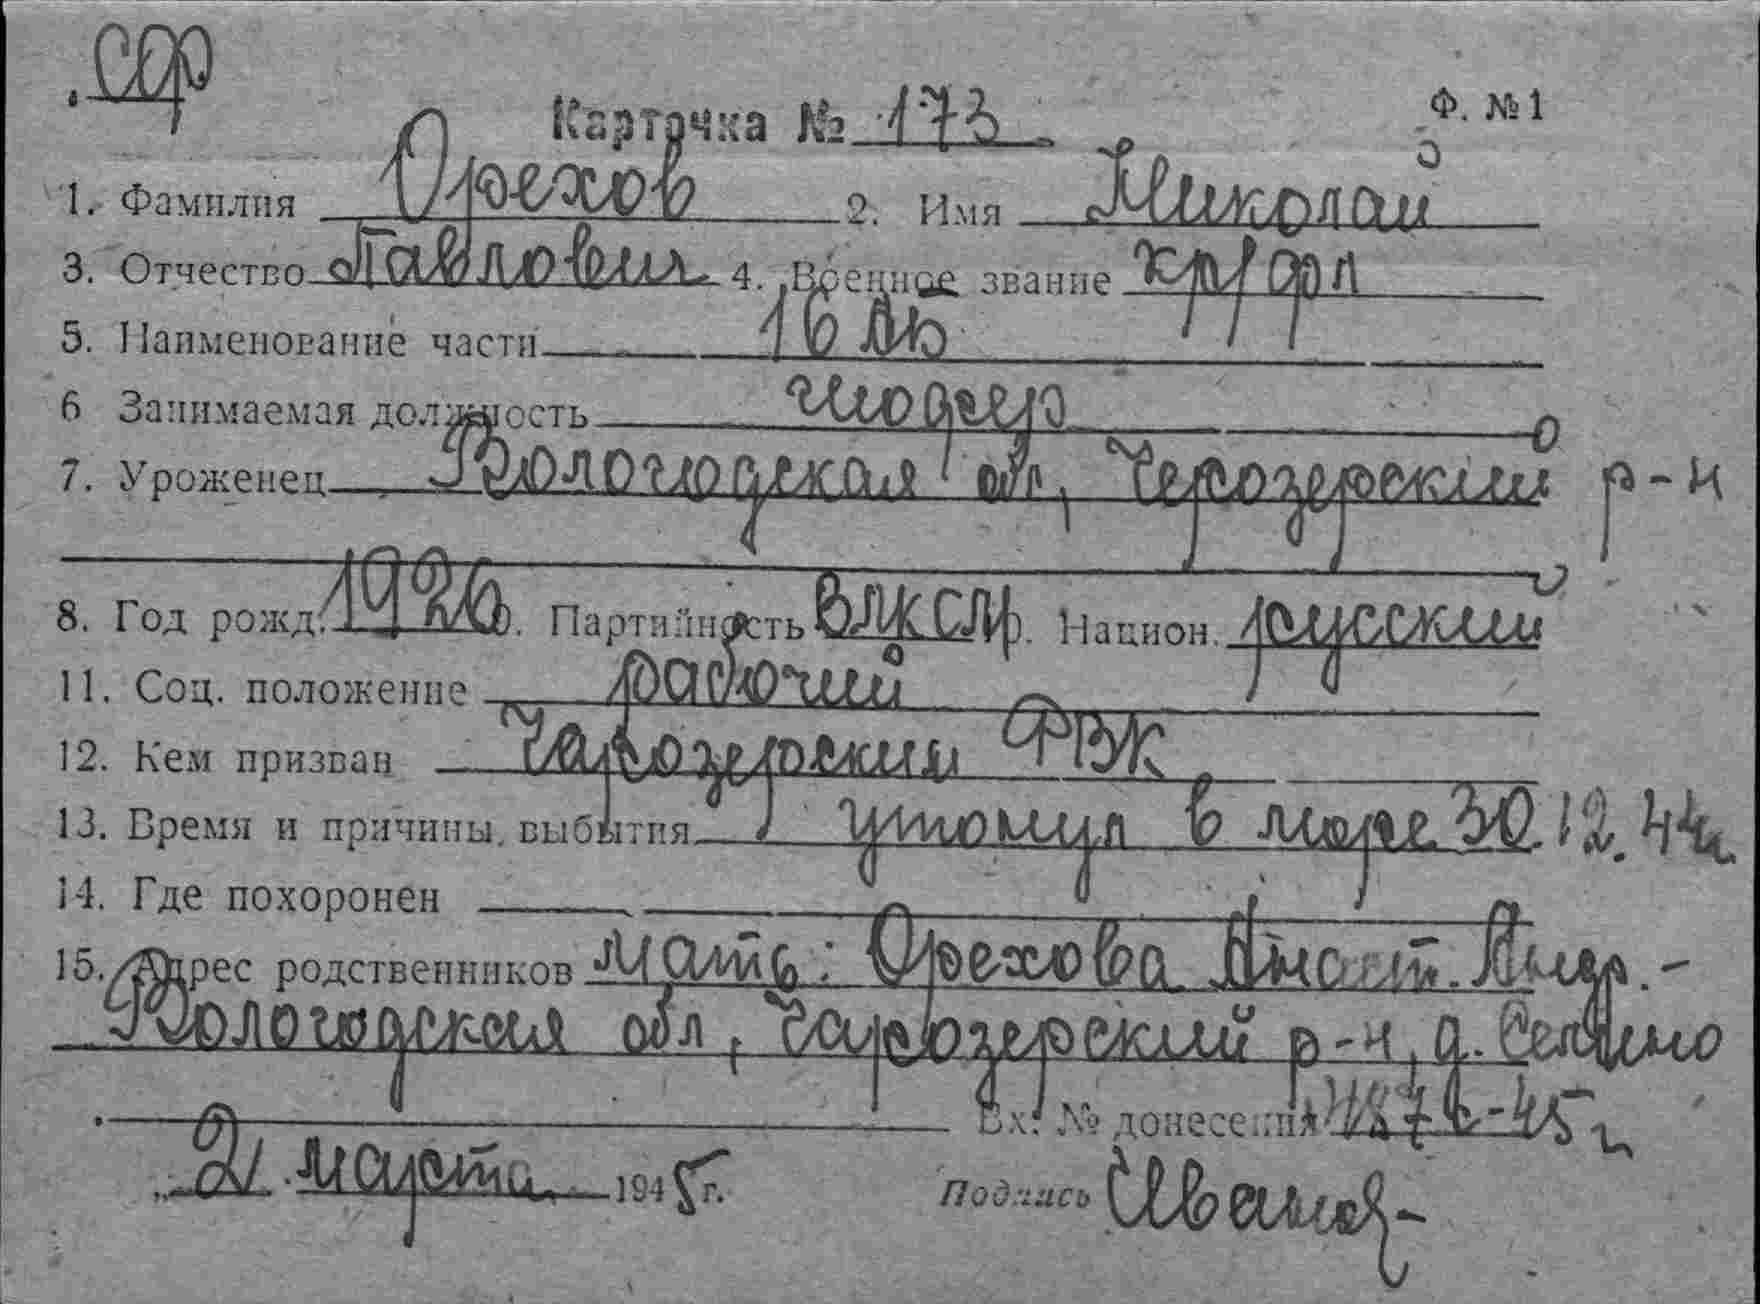 Карточка № 173 Ф. № 1
1. Фамилия Орехов 2. Имя Николай
3. Отчество Павлович 4. Военное звание кр/фл
5. Наименование части
6 Занимаемая должность
7. Уроженец Вологодская обл, Черозерский р-н
8. Год рожд. 1926 Партийность ВЛКСМ Национ. русский
11. Соц. положение рабочий
12. Кем призван Чарозерский РВК
13. Время и причины выбытия утонул в море 30.12.44г
14. Где похоронен
15. Адрес родственников мать: Орехова Анаст. Андр. -
Вологодская обл, Чарозерский р-н, д.
Вх. № донесения
21 марта 1945 г. Подпись